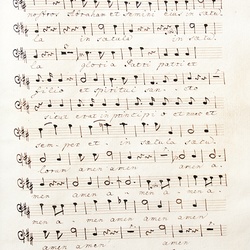 nostros Abraham et semini ejus in saecu
in saecula in saecu
la gloria Patri patri et
filio et spiritui san- cto
sicut erat in principio et nunc et
sem- per et in saecula saecu-
lorum amen amen a-
men amen a- men amen a-
men a- men amen amen
amen amen